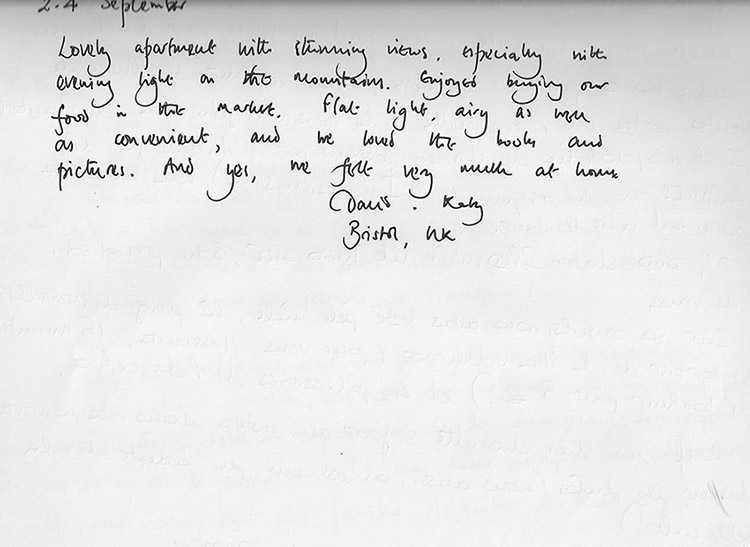 2.4 September
Lovely apartment with stunning views, especially with
evening light on the mountains. Enjoyed buying our
food in the market. Flat light, airy as well
as convenient, and we loved the books and
pictures. And yes, we felt very much at home
David . Katy
Bristol, UK